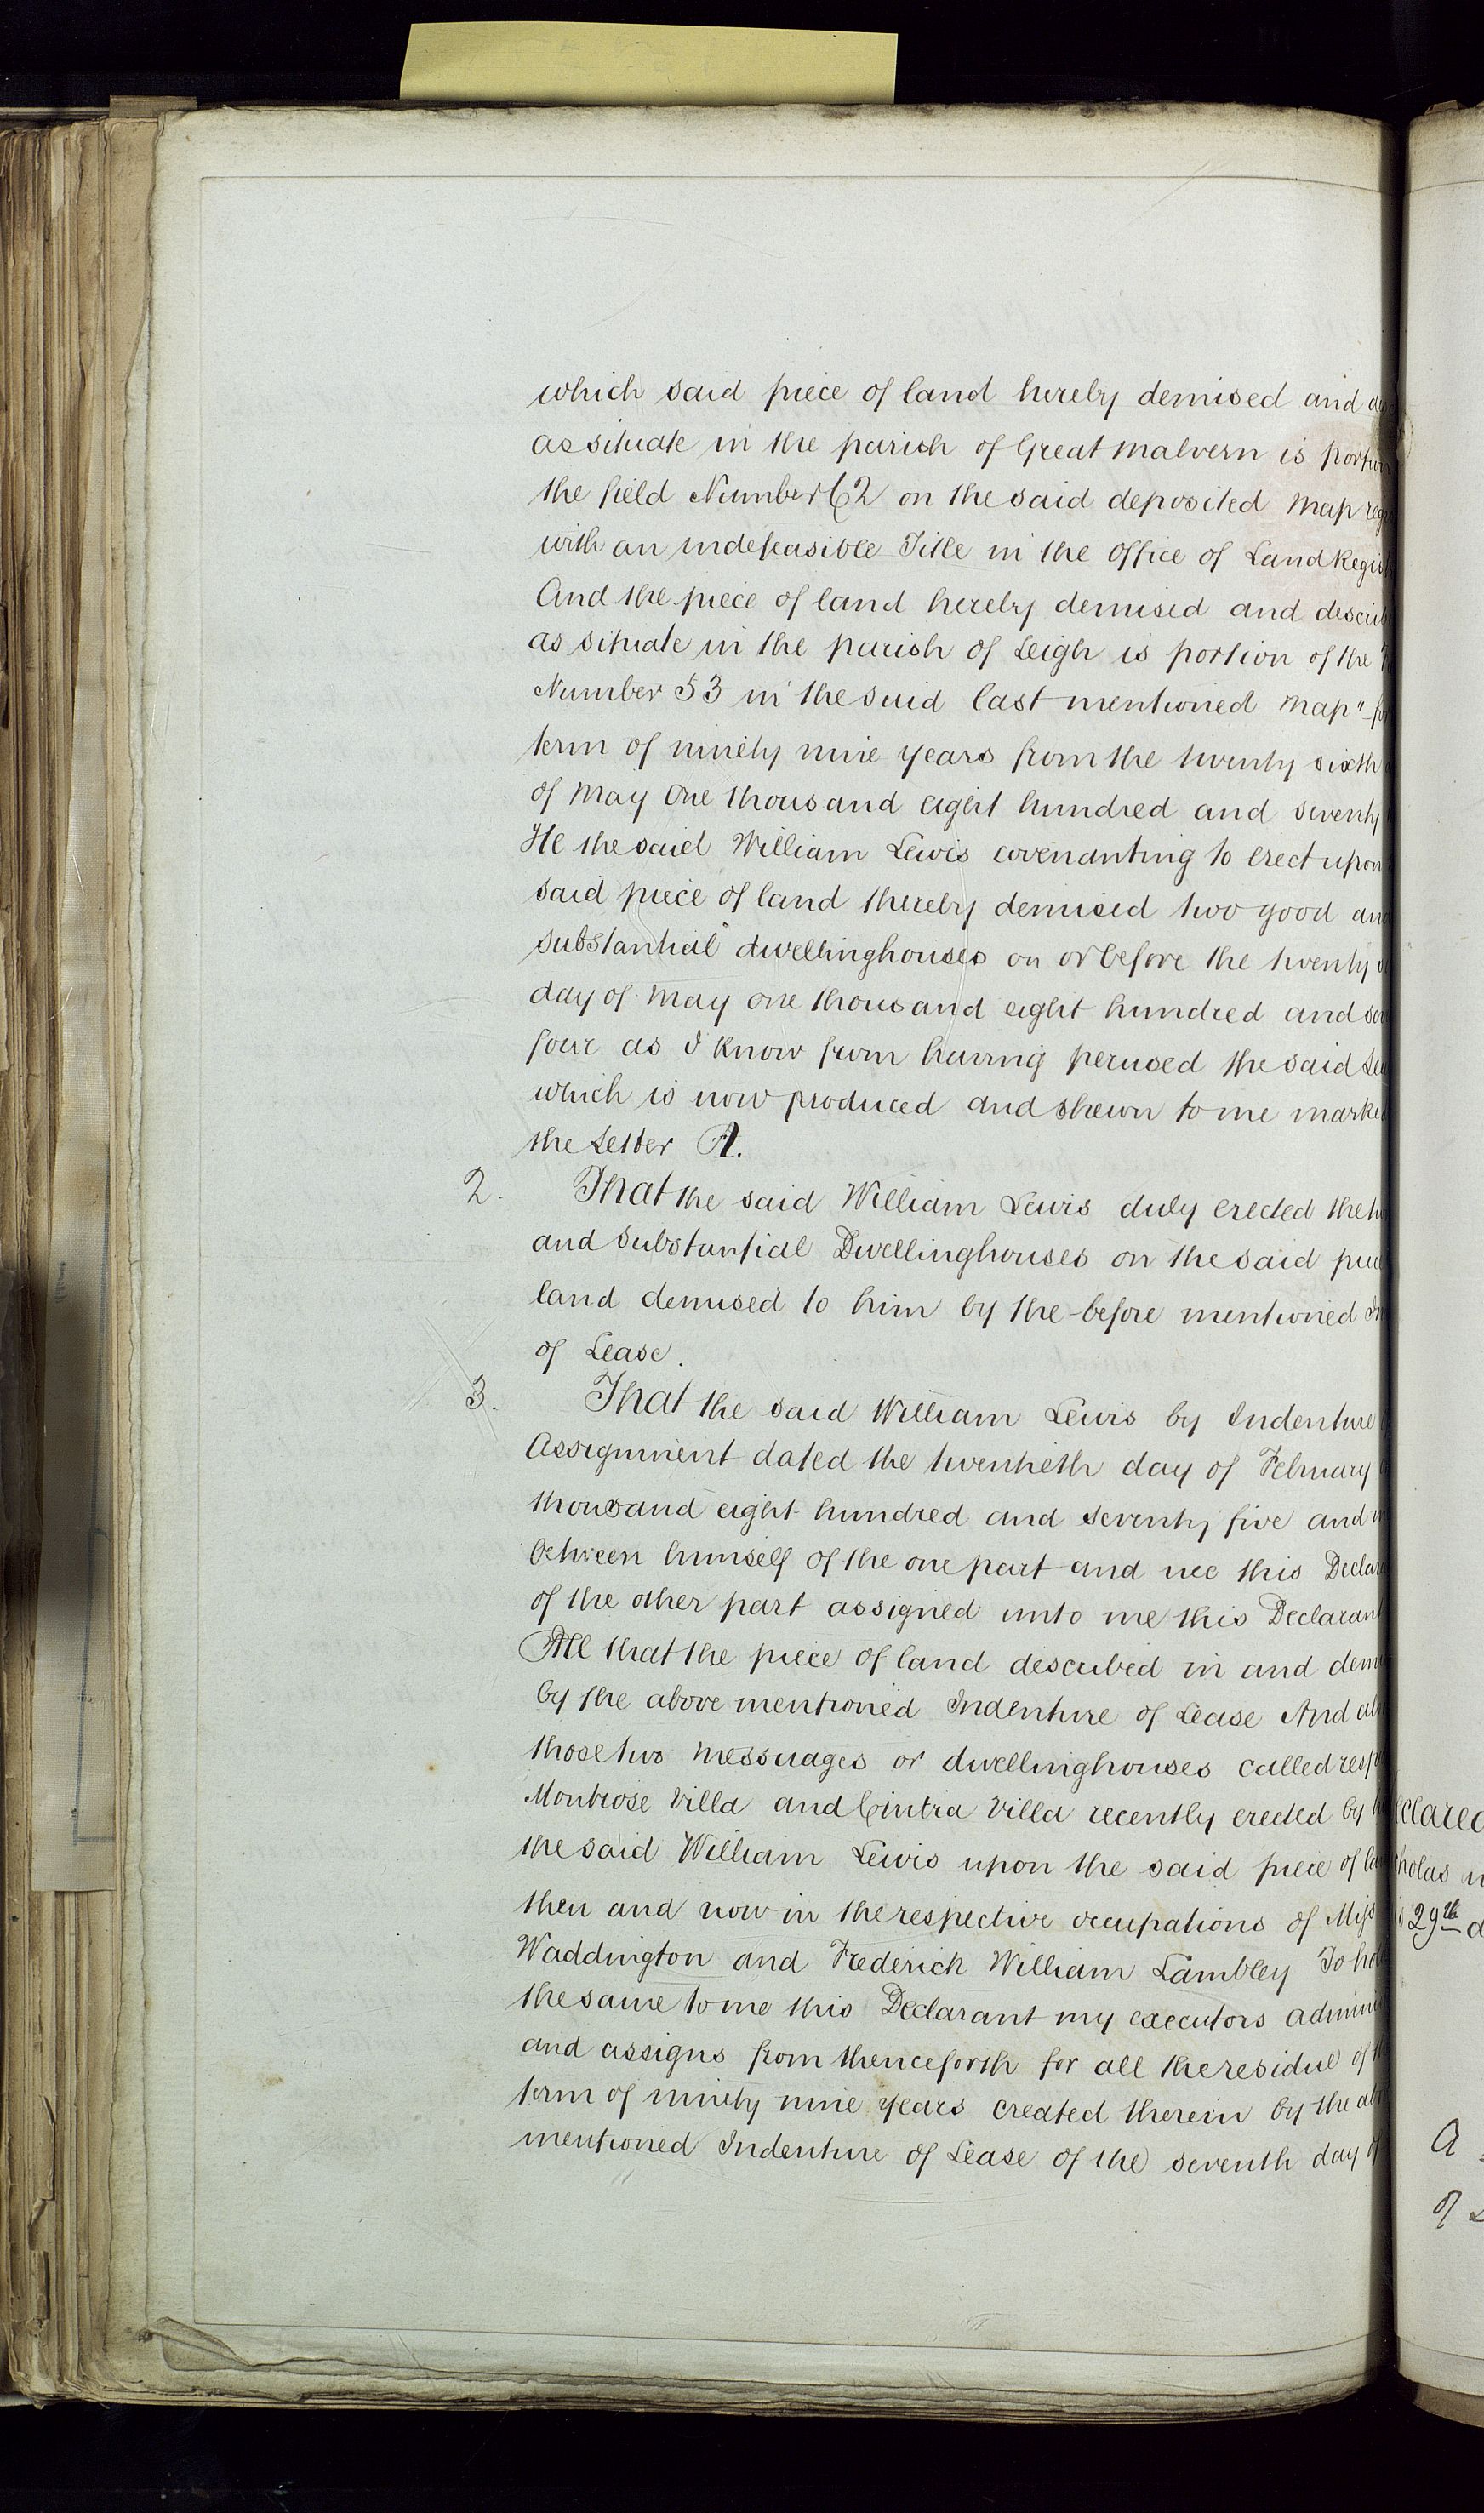 which said piece of land hereby demised and
as situate in the parish of Great Malvern is portion
the field Number 62 on the said deposited Map
with an indefeasible Title in the Office of Land Regis
And the piece of land hereby demised and describ
as situate in the parish of Leigh is portion of the
Number 53 in the said last mentioned Map"
term of ninety nine years from the twenty sixth
of May One thousand eight hundred and seventy
He the said William Lewis covenanting to erect upon
said piece of land thereby demised two good and
substantial dwellinghouses on or before the twenty
day of May one thousand eight hundred and
four as I know from having perused the said
which is now produced and shewn to me marked
the Letter A.
2. That the said William Lewis duly erected the
and substantial Dwellinghouses on the said
land demised to him by the before mentioned
of Lease.
3. That the said William Lewis by Indenture
Assignment dated the twentieth day of February
thousand eight hundred and seventy five and
between himself of the one part and me this Declar
of the other part assigned unto me this Declarant
All that the piece of land described in and dem
by the above mentioned Indenture of Lease And
those two messuages or dwellinghouses called resp
Montrose Villa and Cintra Villa recently erected by
the said William Lewis upon the said piece of la
then and now in the respective occupations of Miss
Waddington and Frederick William Lambley To hold
the same to me this Declarant my executors admini
and assigns from thenceforth for all the residue of
term of ninety nine years created therein by the
mentioned Indenture of Lease of the seventh day of
clared
holas
29th d
A
of